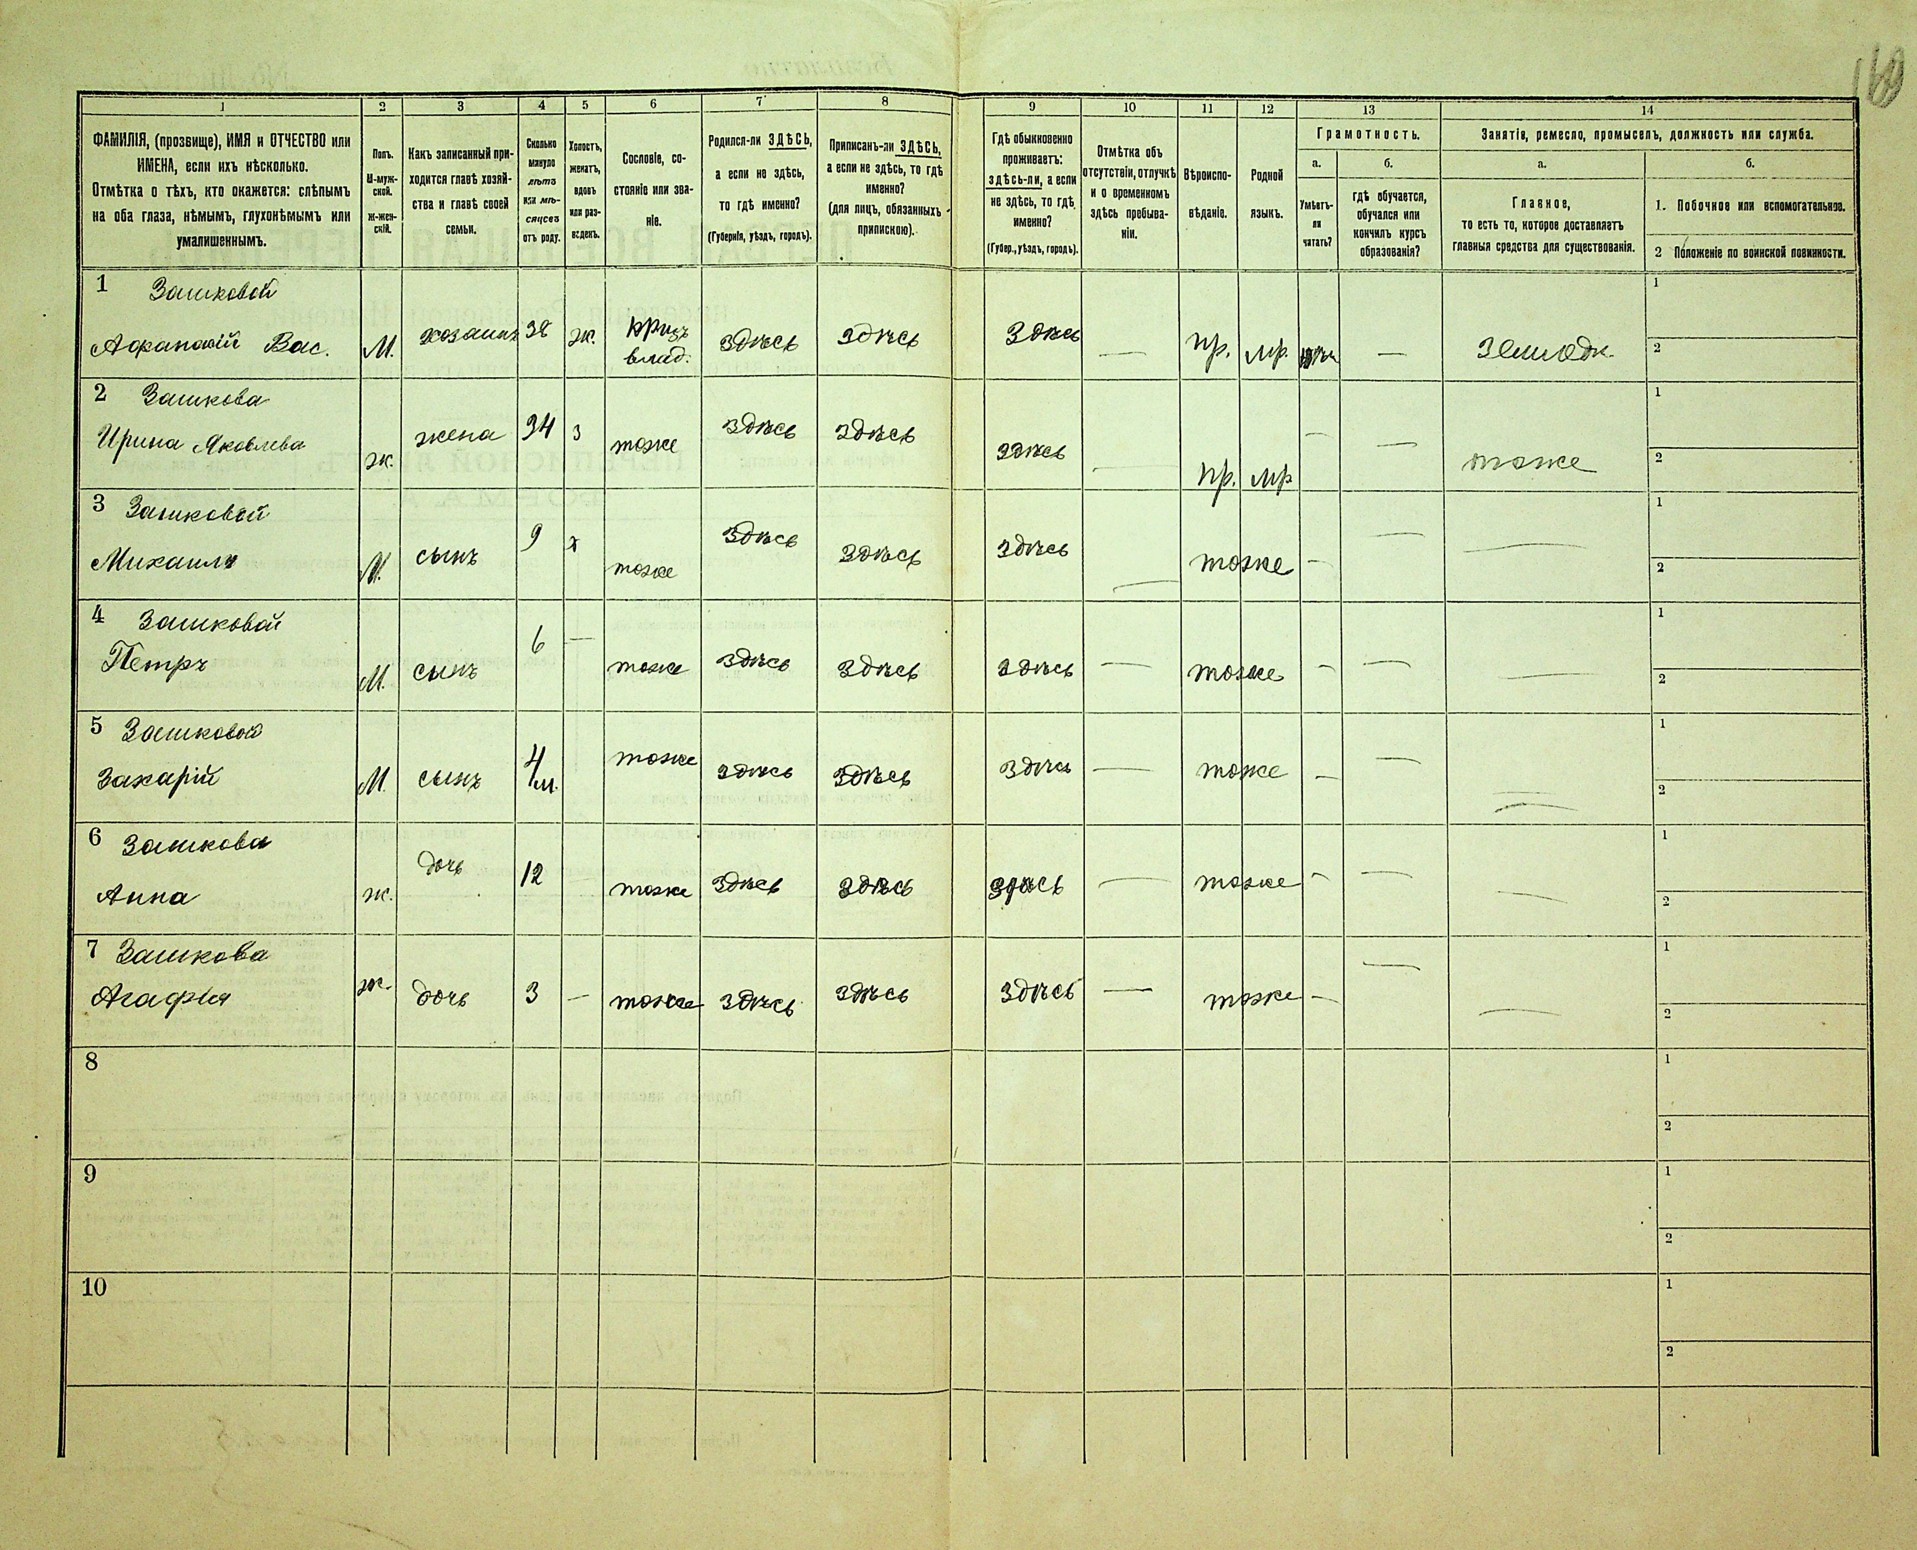 160
1 2 3 4 5 6 7 8 9 10 11 12 13 14
ФАМИЛІЯ, (прозвище), ИМЯ и ОТЧЕСТВО или
ИМЕНА, если ихъ нѣсколько.
Отмѣтка о тѣхъ, кто окажется: слѣпымъ
на оба глаза, нѣмымъ, глухонѣмымъ или
умалишеннымъ.
Полъ.
М-муж-
ской.
Ж-жен-
скій.
Какъ записанный при-
ходится главѣ хозяй-
ства и главѣ своей
семьи.
Сколько
минуло
лѣтъ
или мѣ-
сяцевъ
отъ роду.
Холостъ,
женатъ,
вдовъ
или раз-
веденъ.
Сословіе, со-
стояніе или зва-
ніе.
Родился-ли ЗДѢСЬ,
а если не здѣсь,
то гдѣ именно?
(Губернія, уѣздъ, городъ).
Приписанъ-ли ЗДѢСЬ,
а если не здѣсь, то гдѣ
именно?
(для лицъ, обязанныхъ
припискою).
Гдѣ обыкновенно
проживаетъ:
здѣсь-ли, а если
не здѣсь, то гдѣ
именно?
(Губер., уѣздъ, городъ).
Отмѣтка объ
отсутствіи, отлучкѣ
и о временномъ
здѣсь пребыва-
ніи.
Вѣроиспо-
вѣданіе.
Родной
языкъ.
Грамотность.
а.
Умѣетъ-
ли
читать?
б.
гдѣ обучается,
обучался или
кончилъ курсъ
образованія?
Занятіе, ремесло, промыселъ, должность или служба.
а.
Главное,
то есть то, которое доставляетъ
главныя средства для существованія.
б.
1. Побочное или вспомогательное.
2 Положеніе по воинской повинности.
1 Зашковой
Афанасій Вас. М. хозяинъ 38 ж. здѣсь здѣсь Здѣсь — пр. мр. — землѣд. 1
влад. 2
2 Зашкова
Ирина Яковлева ж. жена 34 з тоже здѣсь здѣсь здѣсь — пр. мр — — тоже 1
2
3 Зашковой
Михаилъ М. сынъ 9 х тоже здѣсь здѣсь здѣсь — тоже — — — 1
2
4 Зашковой
Петръ М. сынъ 6 — тоже здѣсь здѣсь здѣсь — тоже — — — 1
2
5 Зашковой
Захарій М. сынъ 4 м. тоже здѣсь здѣсь здѣсь — тоже — — — 1
2
6 Зашкова
Анна ж. дочь 12 — тоже здѣсь здѣсь здѣсь — тоже — — — 1
2
7 Зашкова
Агафія ж. дочь 3 — тоже здѣсь здѣсь здѣсь — тоже — — — 1
2
8 1
2
9 1
2
10 1
2